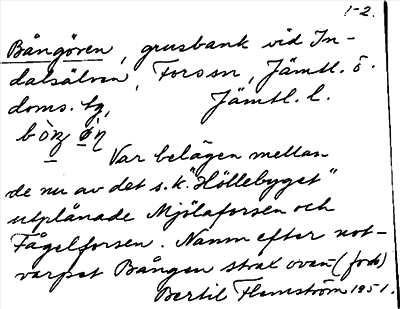 1-2.
Bångören, grusbank vid In-
dalsälven, Fors sn, Jämtl. ö.
doms. tg, Jämtl. l.
Var belägen mellan
de nu av det s.k. "Höllebyget"
utplånade Mjölaforsen och
Fågelforsen. Namn efter not-
varpet Bången strax ovan (fors)
Bertil Flemström 1951.